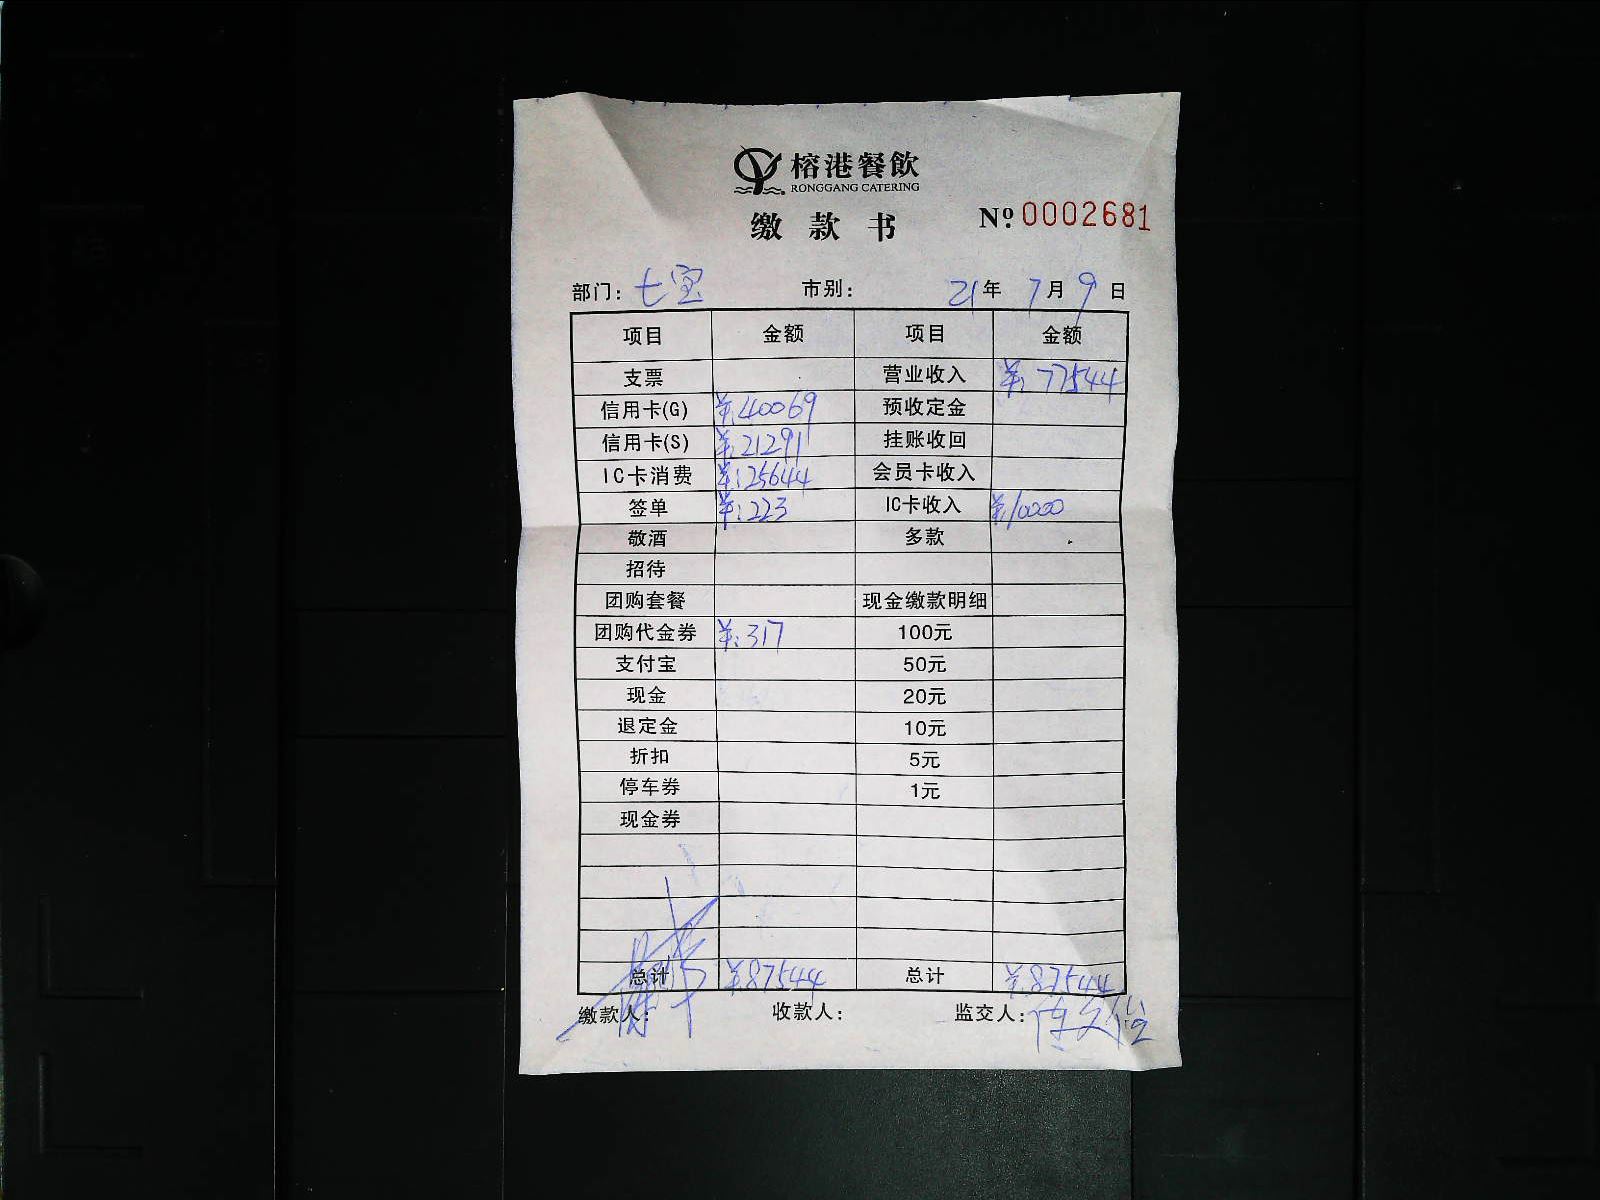 榕港餐飲
RONGGANG CATERING
缴款书 Nº 0002681
部门: 七宝 市别: 21年 7月 9日
项目 金额 项目 金额
支票 营业收入 ¥: 77544
信用卡(G) ¥:40069 预收定金
信用卡(S) ¥:21291 挂账收回
IC卡消费 ¥:25644 会员卡收入
签单 ¥:223 IC卡收入 ¥:10000
敬酒 多款
招待
团购套餐 现金缴款明细
团购代金券 ¥:317 100元
支付宝 50元
现金 20元
退定金 10元
折扣 5元
停车券 1元
现金券
总计 ¥:87544 总计 ¥:87544
缴款人: 收款人: 监交人: